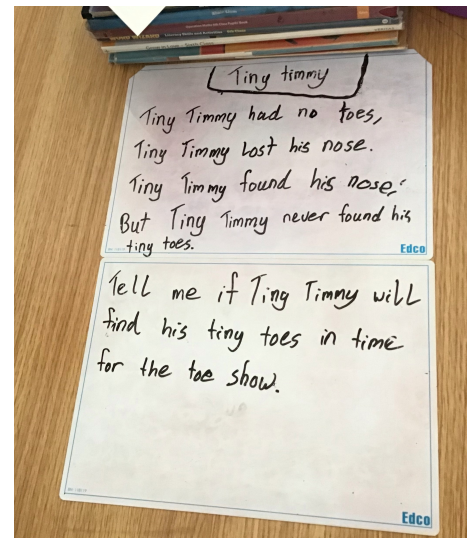 Tiny timmy
Tiny Timmy had no toes,
Tiny Timmy Lost his nose.
Tiny Timmy found his nose,
But Tiny Timmy never found his
tiny toes.
Edco
Tell me if Ting Timmy will
find his tiny toes in time
for the toe show.
Edco